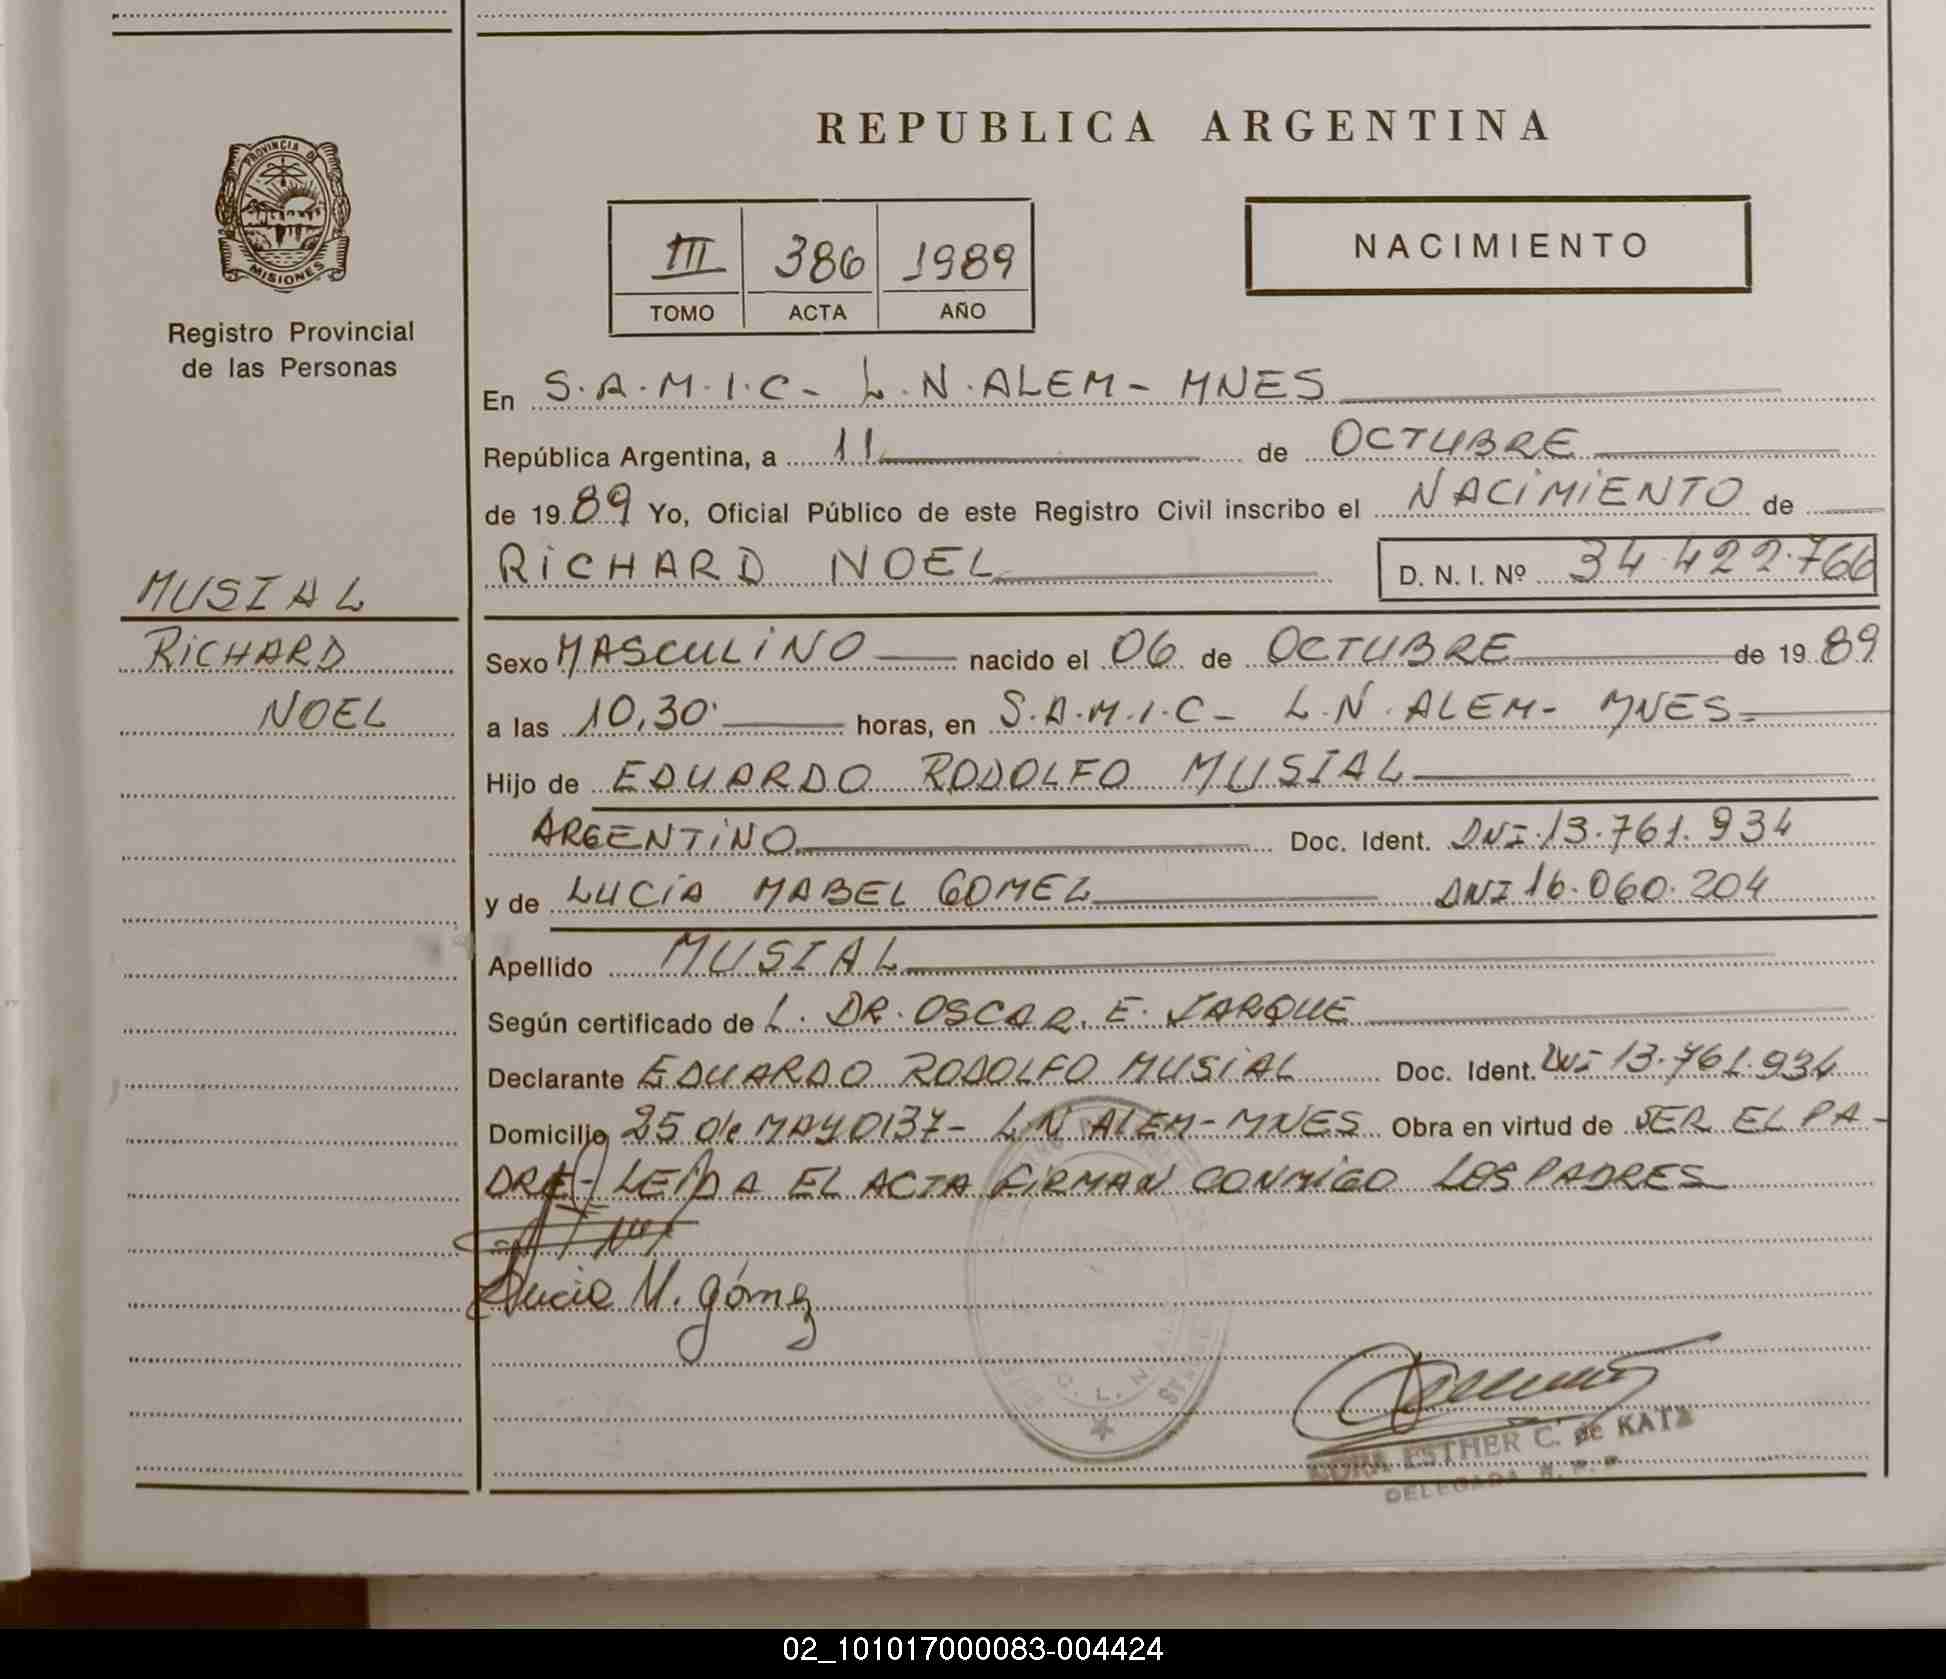 REPUBLICA ARGENTINA
PROVINCIA DE
MISIONES
Registro Provincial
de las Personas
III 386 1989
TOMO ACTA AÑO
NACIMIENTO
En S.A.M.I.C- L.N.ALEM- MNES
República Argentina, a 11 de OCTUBRE
de 1989 Yo, Oficial Público de este Registro Civil inscribo el NACIMIENTO de
RICHARD NOEL D. N. I. Nº 34.422.766
MUSIAL
RICHARD
NOEL
Sexo MASCULINO nacido el 06 de OCTUBRE de 1989
a las 10,30 horas, en S.A.M.I.C- L.N.ALEM- MNES-
Hijo de EDUARDO RODOLFO MUSIAL
ARGENTINO Doc. Ident. DNI.13.761.934
y de LUCIA MABEL GOMEZ DNI 16.060.204
Apellido MUSIAL
Según certificado de L. DR. OSCAR. E. JARQUE
Declarante EDUARDO RODOLFO MUSIAL Doc. Ident. DNI 13.761.934
Domicilio 25 de MAYO 137- L.N ALEM-MNES Obra en virtud de SER EL PA-
DRE- LEIDA EL ACTA FIRMAN CONMIGO LOS PADRES
Lucia M. Gómez
ESTHER C. de KATZ
DELEGADA R. P. P.
02_101017000083-004424